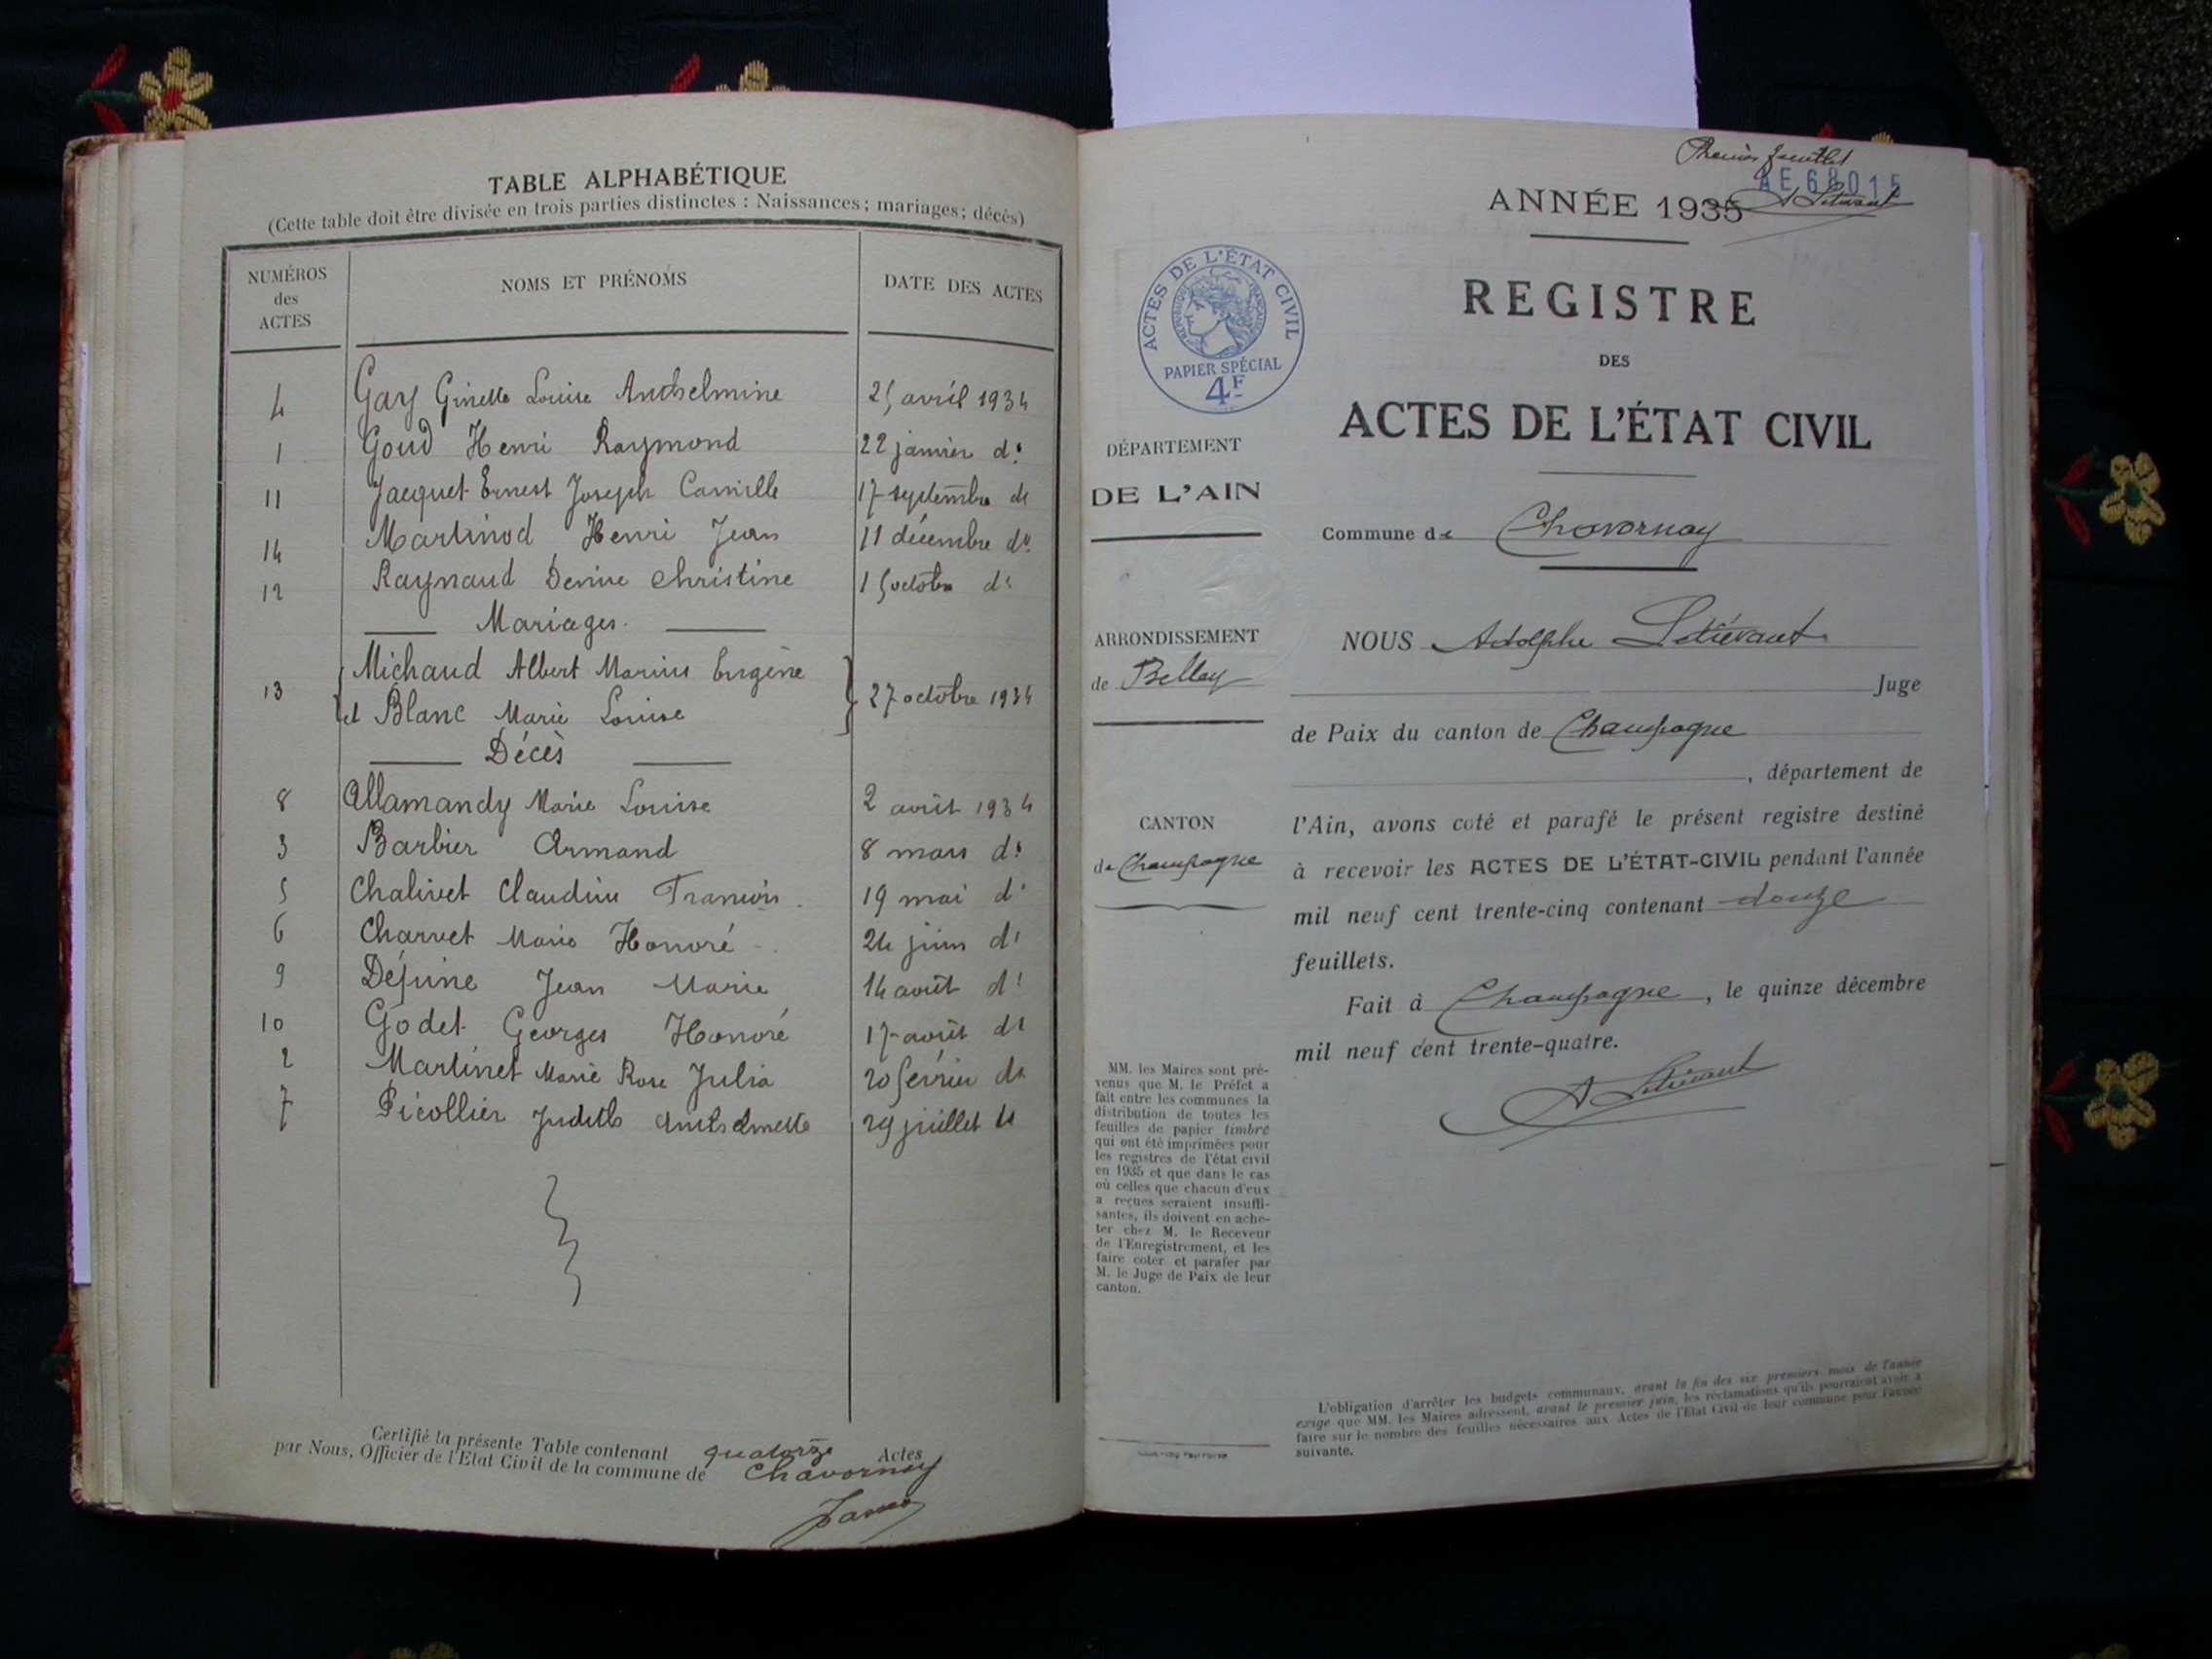 TABLE ALPHABÉTIQUE
(Cette table doit être divisée en trois parties distinctes : Naissances ; mariages ; décès)
NUMÉROS
des
ACTES
NOMS ET PRÉNOMS
DATE DES ACTES
4 Gay Ginette Louise Anthelmine 25 avril 1934
1 Goud Henri Raymond 22 janvier do
11 Jacquet Ernest Joseph Camille 17 septembre do
14 Martinod Henri Jean 11 décembre do
12 Raynaud Denise Christine 15 octobre do
Mariages.
Michaud Albert Marius Eugène
13 et Blanc Marie Louise 27 octobre 1934
Décès
8 Allamandy Marie Louise 2 août 1934
3 Barbier Armand 8 mars do
5 Chalivet Claudius François 19 mai do
6 Charvet Marie Honoré 24 juin do
9 Déjúine Jean Marie 14 août do
10 Godet Georges Honoré 17 août do
2 Martinet Marie Rose Julia 20 février do
7 Picollier Judith Anthelmette 29 juillet do
Certifié la présente Table contenant quatorze Actes
par Nous, Officier de l'Etat Civil de la commune de Chavornay
Premier feuillet
AE 68015
ANNÉE 1935
A Létiévant
REGISTRE
DES
ACTES DE L'ÉTAT CIVIL
ACTES DE L'ÉTAT CIVIL
RÉPUBLIQUE FRANÇAISE
PAPIER SPÉCIAL
4F
DÉPARTEMENT
DE L'AIN
ARRONDISSEMENT
de Belley
CANTON
de Champagne
MM. les Maires sont pré-
venus que M. le Préfet a
fait entre les communes la
distribution de toutes les
feuilles de papier timbré
qui ont été imprimées pour
les registres de l'état civil
en 1935 et que dans le cas
où celles que chacun d'eux
a reçues seraient insuffi-
santes, ils doivent en ache-
ter chez M. le Receveur
de l'Enregistrement, et les
faire coter et parafer par
M. le Juge de Paix de leur
canton.
Commune de Chavornay
NOUS Adolphe Létiévant
Juge
de Paix du canton de Champagne
, département de
l'Ain, avons coté et parafé le présent registre destiné
à recevoir les ACTES DE L'ÉTAT-CIVIL pendant l'année
mil neuf cent trente-cinq contenant douze
feuillets.
Fait à Champagne, le quinze décembre
mil neuf cent trente-quatre.
A Létiévant
L'obligation d'arrêter les budgets communaux, avant la fin des six premiers mois de l'année
exige que MM. les Maires adressent, avant le premier juin, les réclamations qu'ils pourraient avoir à
faire sur le nombre des feuilles nécessaires aux Actes de l'Etat Civil de leur commune pour l'année
suivante.